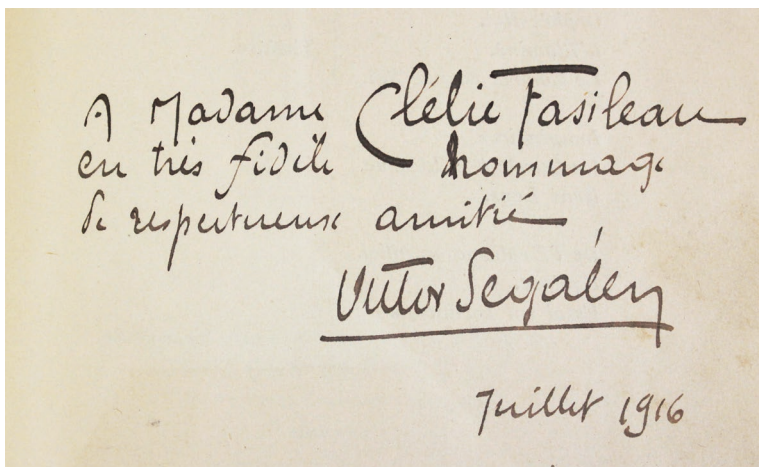 A Madame Clélie Fasileau
en très fidèle hommage
de respectueuse amitié
Victor Segalen
Juillet 1916